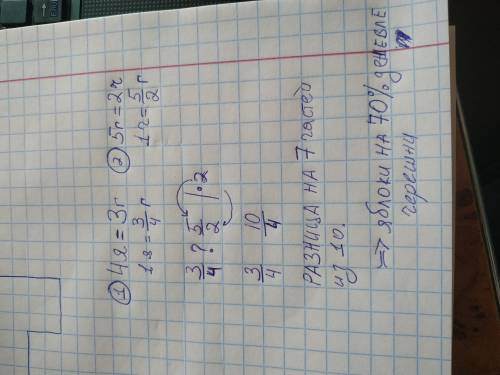 ① 4я = 3г
1я = 3/4 г
② 5г = 2ч
1ч = 5/2 г
3/4 ? 5/2 | · 2
3/4 10/4
РАЗНИЦА НА 7 частей
из 10.
=> яблоки НА 70% дешевле
черешни